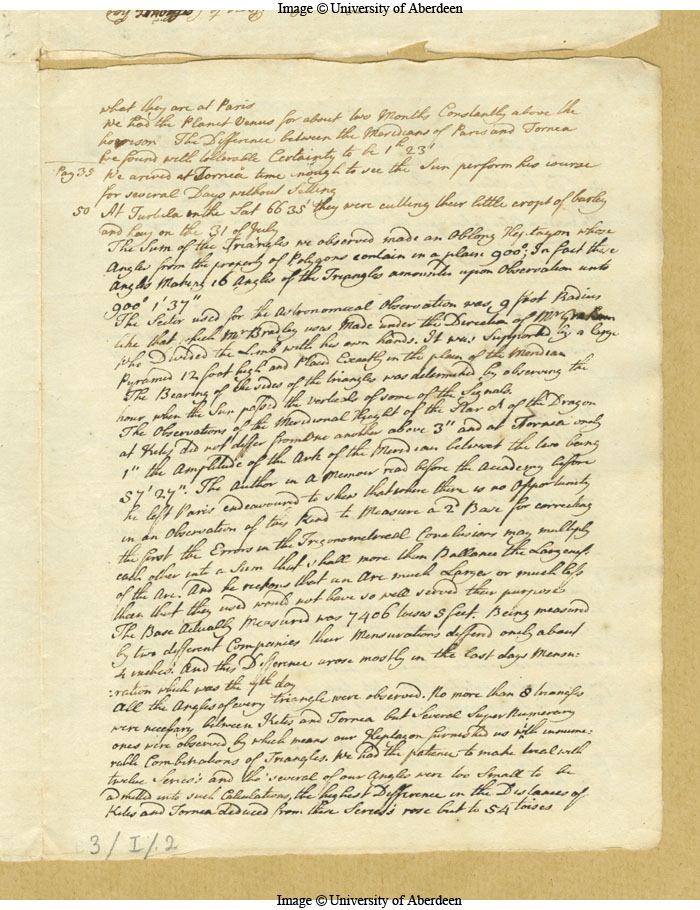 Image © University of Aberdeen
what they are at Paris
We had the Planet Venus for about two Months Constantly above the
horrison The Difference between the Meridians of Paris and Tornea
we found with tolerable Certainty to be 1h 23'
Pag 35 We arived at Tornea time enough to see the Sun perform his course
for several Days without Setting
50 At Turtula in the Lat 66 35' they were cutting their little crops of barley
and hay on the 31 of July
The Sum of the Triangles we observed made an Oblong Heptagon whose
Angles from the property of Polygons contain in a plain 900°; In fact these
Angles Making 16 Angles of the Triangles amounted upon Observation unto
900° 1' 37"
The Sector used for the Astronomical Observation was 9 foot Radius
like that which Mr Bradley uses Made under the Direction of Mr Graham
who Divided the Limb with his own hands. It was Supported by a large
Pyramid 12 foot high and Plac'd Exactly in the plain of the Meridian
The Bearing of the sides of the triangles was determined by observing the
hour when the Sun pass'd the verticals of some of the Signals.
The Observations of the Meridional Height of the Star of the Dragon
at Kitis did not differ from one another above 3" and at Tornea only
1" the Amplitude of the Ark of the Meridian betwixt the two being
57' 27". The Author in a Memoir read before the Academy before
he left Paris endeavoured to shew that where there is no Opportunity
in an Observation of this Kind to Measure a 2d Base for correcting
the first the Errors in the Trigonometrical Conclusions may multiply
each other into a Sum that shall more than Ballance the Largeness
of the Arc. And he reckons that an Arc much Larger or much less
than that they used would not have so well served their purpose
The Base actually Measured was 7406 toises 5 feet. Being measured
by two different Companies their Mensurations differd only about
4 inches. And this Difference arose mostly in the last days Mensu:
:ration which was the 7th day
All the Angles of every triangle were observed. No more than 8 triangles
were necessary between Kitis and Tornea but Several Super Numerary
ones were observed by which means our Heptagon furnished us with innume:
rable Combinations of Triangles. We had the patience to make with
twelve Series's and tho' several of our Angles were too Small to be
admitted into such Calculations, the highest Difference in the Distances of
Kitis and Tornea deduced from these Series's rose but to 54 toises
3/I/.2
Image © University of Aberdeen